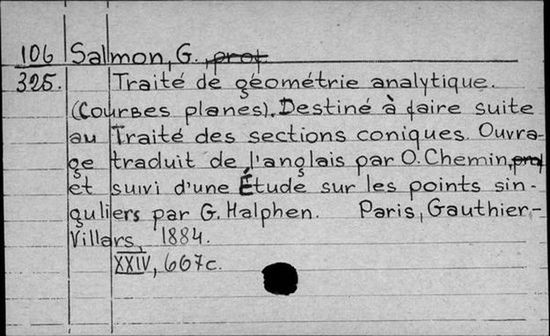 106 Salmon, G., prof
325. Traité de géométrie analytique.
(Courbes planes). Destiné à faire suite
au Traité des sections coniques. Ouvra-
ge traduit de l'anglais par O. Chemin, prof
et suivi d'une Étude sur les points sin-
guliers par G. Halphen. Paris, Gauthier-
Villars, 1884.
XXIV, 667c.